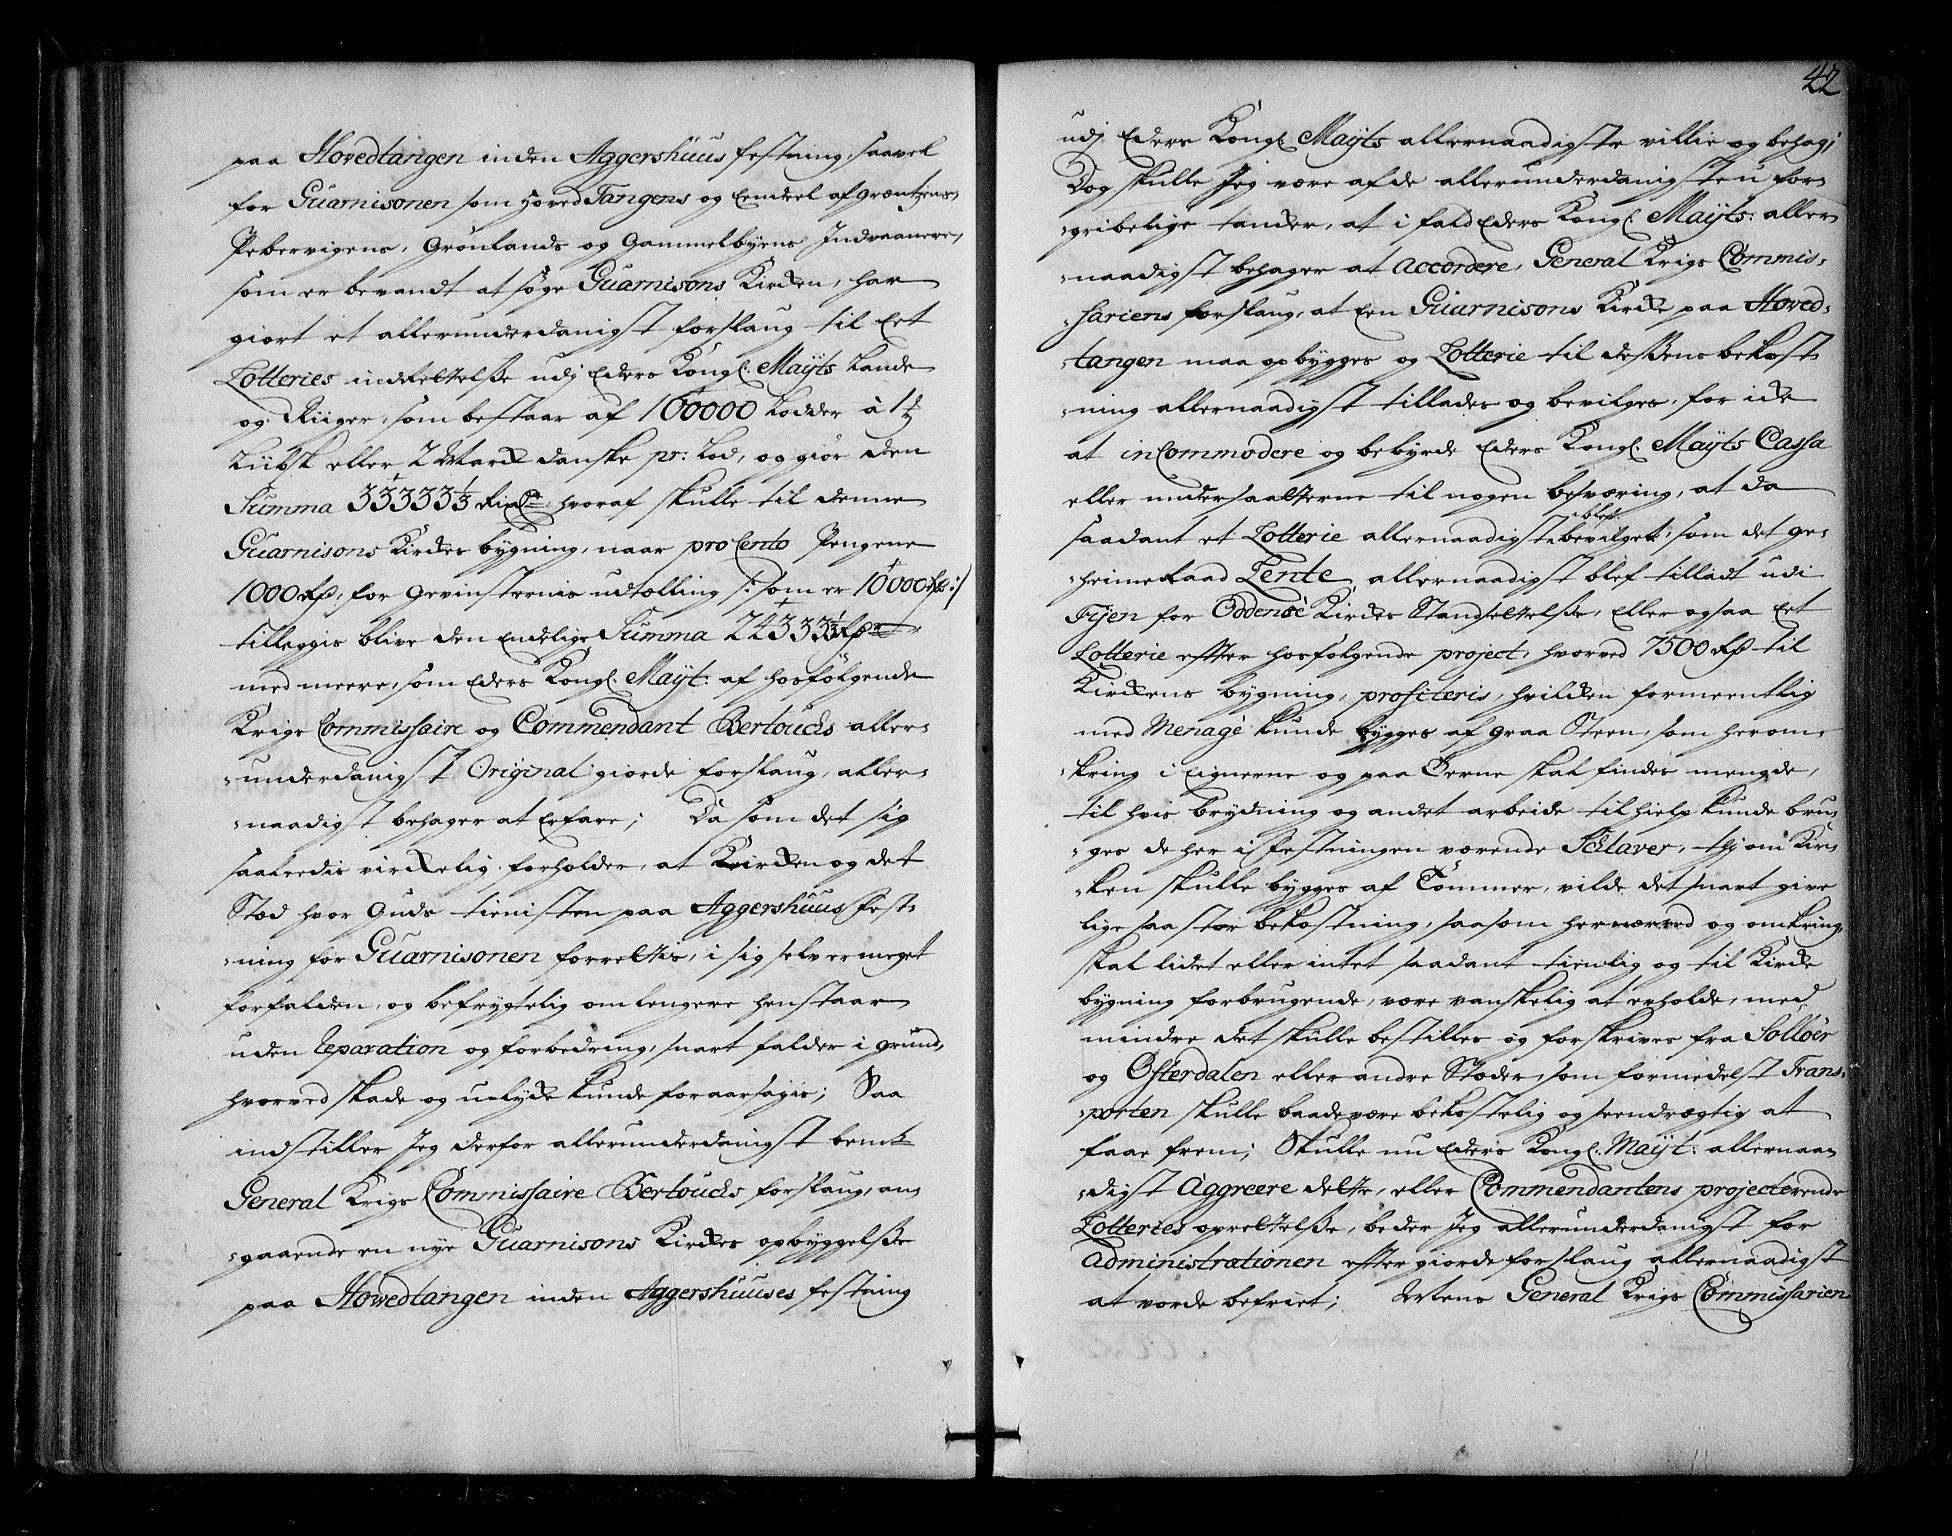 paa Hovedtangen inden Aggershuus festning, saavel
for Guarnisonen som Hoved Tangens og Eendeel af Græntzens
Pebervigens, Grønlands og Gammelbyens Indvaanere,
som er bevandt at søge Guarnisons Kircken, har
giort et allerunderdanigst forslaug til Eet
Lotteries indrettelse udj Eders Kongl. Mayts Lande
og Riiger, som bestaar af 100000 Lodder à 1
Lübsk eller 2 Marck danske pr: Lod, og giør den
Summa 33333⅓ Rix, hvoraf skulle til denne
Guarnisons Kirckes bygning, naar pro Cento Pengene
1000 Rd, for Gevinsternis udtælling /: som er 10000 Rd :/
tilleggis blive den Endelige Summa 22333⅓ Rd
med meere, som Eders Kongl. Mayt: af hosfölgende
Krigs Commissaire og Commendant Bertouchs aller-
-underdanigst Original giorde forslaug, aller-
-naadigst behager at Erfare; Da som det sig
saaleedis virckelig forholder, at Kircken og det
Stæd hvor Guds tienisten paa Aggershuus Fest-
-ning for Guarnisonen forrettis, i sig selv er meget
forfalden, og befrygtelig om lengere henstaar
uden Reparation og forbedring, snart falder i grund,
hvorved skade og ulycke kunde foraarsagis; Saa
indstiller Jeg derfor allerunderdanigst bemte
General Krigs Commissaire Bertouchs forslaug, an-
-gaaende en nye Guarnisons Kirckes opbyggelse
paa Hovedtangen inden Aggershuuses festning
42
udj Eders Kongl. Mayts allernaadigste villie og behag;
Dog skulle Jeg være af de allerunderdanigste ufor-
-gribelige tancker, at i fald Eders Kongl. Mayts: aller
-naadigst behager at Accordere, General Krigs Commis-
-sariens forslaug, at Een Guarnisons Kircke paa Hoved-
-tangen maa opbygges og Lotterie til dessens bekost-
-ning allernaadigst tillades og bevilges, for icke
at incommodere og bebyrde Eders Kongl. Mayts Cassa
eller undersaatterne til nogen besværing, at da
saadant et Lotterie allernaadigst blef bevilget, som det ge-
-heime Raad Lente allernaadigst blef tilladt udi
Fyen for Oddensè Kirckes Standsettelse, Eller ogsaa Eet
Lotterie efter hosfølgende project, hvorved 7500 Rd til
Kirckens bygning, profiteris, hvilcken formeentlig
med Menage kunde bygges af graa Steen, som herom-
kring i Eignerne og paa Øerne skal findes mengde,
til hvis brydning og andet arbeide til hielp kunde bru-
-ges de her i Festningen værende Schlaver, thj om Kir-
-ken skulle bygges af Tömmer, vilde det snart give
lige saa stor bekostning, saasom her nærved og omkring
skal lidet eller intet saadant tienlig og til Kircke
bygning forbrugende, være vanskelig at erholde, med
mindre det skulle bestilles og forskrives fra Solløer
og Østerdalen eller andre Stæder, som formedelst Trans-
-porten skulle baade være bekostelig og seendrægtig at
faae frem; Skulle nu Eders Kongl. Mayt: allernaa-
-digst Aggreere dette, eller Commendantens projecterende
Lotteries oprettelse, beder Jeg allerunderdanigst for
Administrationen efter giorde forslaug allernaadigst
at vorde befriet; General Krigs Commissarien